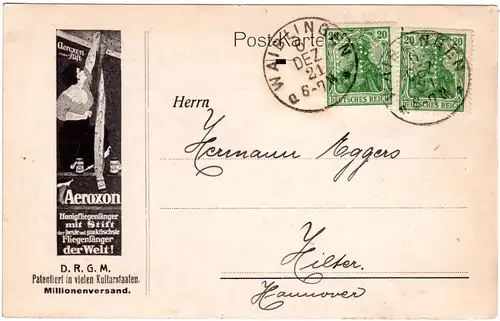 Aeroxon
Stift
PostKarte
WAIBLINGEN
DEZ
21
6-7N
20 20
DEUTSCHES REICH
20 20
DEUTSCHES REICH
Herrn
Hermann Eggers
Hilter.
Hannover
Aeroxon
Honigfliegenfänger
mit Stift
der beste und praktischste
Fliegenfänger
der Welt!
D. R. G. M.
Patentiert in vielen Kulturstaaten.
Millionenversand.